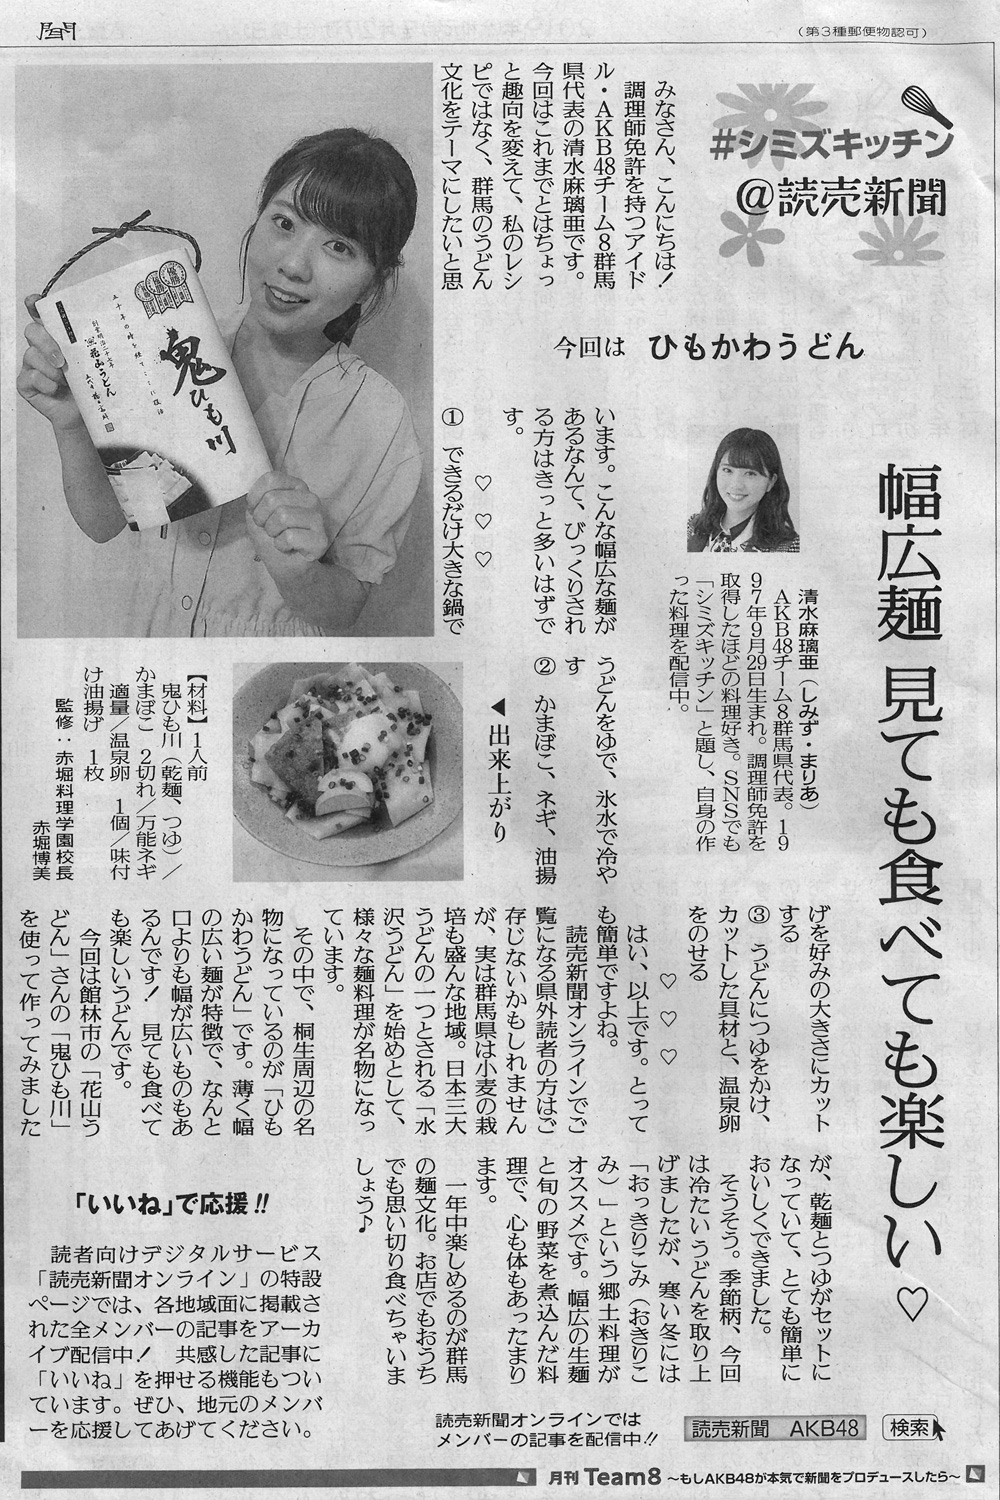 聞
(第3種郵便物認可)
#シミズキッチン
@読売新聞
みなさん、こんにちは!
調理師免許を持つアイド
ル・AKB48チーム8群馬
県代表の清水麻璃亜です。
今回はこれまでとはちょっ
と趣向を変えて、私のレシ
ピではなく、群馬のうどん
文化をテーマにしたいと思
今回は ひもかわうどん
幅広麺 見ても食べても楽しい♡
清水麻璃亜(しみず・まりあ)
AKB48チーム8群馬県代表。19
97年9月29日生まれ。調理師免許を
取得したほどの料理好き。SNSでも
「シミズキッチン」と題し、自身の作
った料理を配信中。
います。こんな幅広な麺が
あるなんて、びっくりされ
る方はきっと多いはずで
す。
♡ ♡ ♡
① できるだけ大きな鍋で
うどんをゆで、氷水で冷や
す
② かまぼこ、ネギ、油揚
げを好みの大きさにカット
する
③ うどんにつゆをかけ、
カットした具材と、温泉卵
をのせる
♡ ♡ ♡
はい、以上です。とって
も簡単ですよね。
読売新聞オンラインでご
覧になる県外読者の方はご
存じないかもしれません
が、実は群馬県は小麦の栽
培も盛んな地域。日本三大
うどんの一つとされる「水
沢うどん」を始めとして、
様々な麺料理が名物になっ
ています。
その中で、桐生周辺の名
物になっているのが「ひも
かわうどん」です。薄く幅
の広い麺が特徴で、なんと
口よりも幅が広いものもあ
るんです! 見ても食べて
も楽しいうどんです。
今回は館林市の「花山う
どん」さんの「鬼ひも川」
を使って作ってみました
が、乾麺とつゆがセットに
なっていて、とても簡単に
おいしくできました。
そうそう。季節柄、今回
は冷たいうどんを取り上
げましたが、寒い冬には
「おっきりこみ(おきりこ
み)」という郷土料理が
オススメです。幅広の生麺
と旬の野菜を煮込んだ料
理で、心も体もあったまり
ます。
一年中楽しめるのが群馬
の麺文化。お店でもおうち
でも思い切り食べちゃいま
しょう♪
◀出来上がり
【材料】1人前
鬼ひも川(乾麺、つゆ)/
かまぼこ 2切れ/万能ネギ
適量/温泉卵 1個/味付
け油揚げ 1枚
監修:赤堀料理学園校長
赤堀博美
鬼ひも川
五十年の時を経て
創業明治二十七年
花山うどん
「いいね」で応援!!
読者向けデジタルサービス
「読売新聞オンライン」の特設
ページでは、各地域面に掲載さ
れた全メンバーの記事をアーカ
イブ配信中! 共感した記事に
「いいね」を押せる機能もつい
ています。ぜひ、地元のメンバ
ーを応援してあげてください。
読売新聞オンラインでは
メンバーの記事を配信中!!
読売新聞 AKB48
検索
月刊 Team8 ~もしAKB48が本気で新聞をプロデュースしたら~